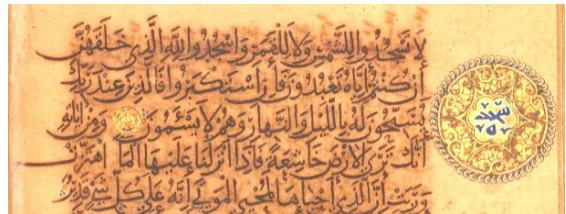 لا تسجدوا للشمس ولا للقمر واسجدوا لله الذي خلقهن
ان كنتم اياه تعبدون فان استكبروا فالذين عند ربك
يسبحون له بالليل والنهار وهم لا يسئمون ومن اياته
انك ترى الارض خاشعة فاذا انزلنا عليها الماء اهتزت
وربت ان الذي احياها لمحيي الموتى انه على كل شيء قدير
سجدة